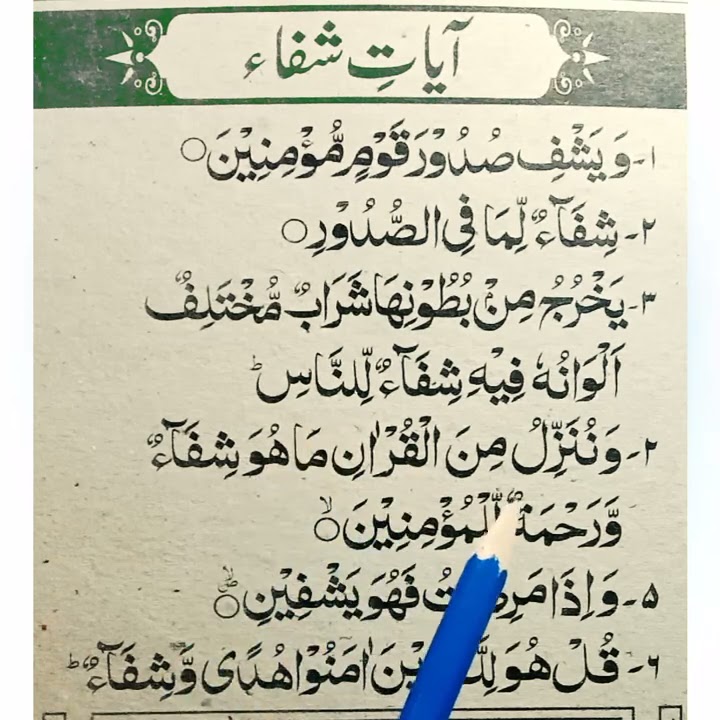 آیاتِ شفاء
۱۔ وَ یَشْفِ صُدُوْرَ قَوْمٍ مُّؤْمِنِیْنَ○
۲۔ شِفَآءٌ لِّمَا فِی الصُّدُوْرِ○
۳۔ یَخْرُجُ مِنْۢ بُطُوْنِهَا شَرَابٌ مُّخْتَلِفٌ
اَلْوَانُهٗ فِیْهِ شِفَآءٌ لِّلنَّاسِ ؕ
۴۔ وَنُنَزِّلُ مِنَ الْقُرْاٰنِ مَا هُوَ شِفَآءٌ
وَّرَحْمَةٌ لِّلْمُؤْمِنِیْنَ○ۙ
۵۔ وَ اِذَا فَهُوَ یَشْفِیْنِ○
۶۔ قُلْ هُوَ اٰمَنُوْا هُدًی وَّشِفَآءٌ ؕ